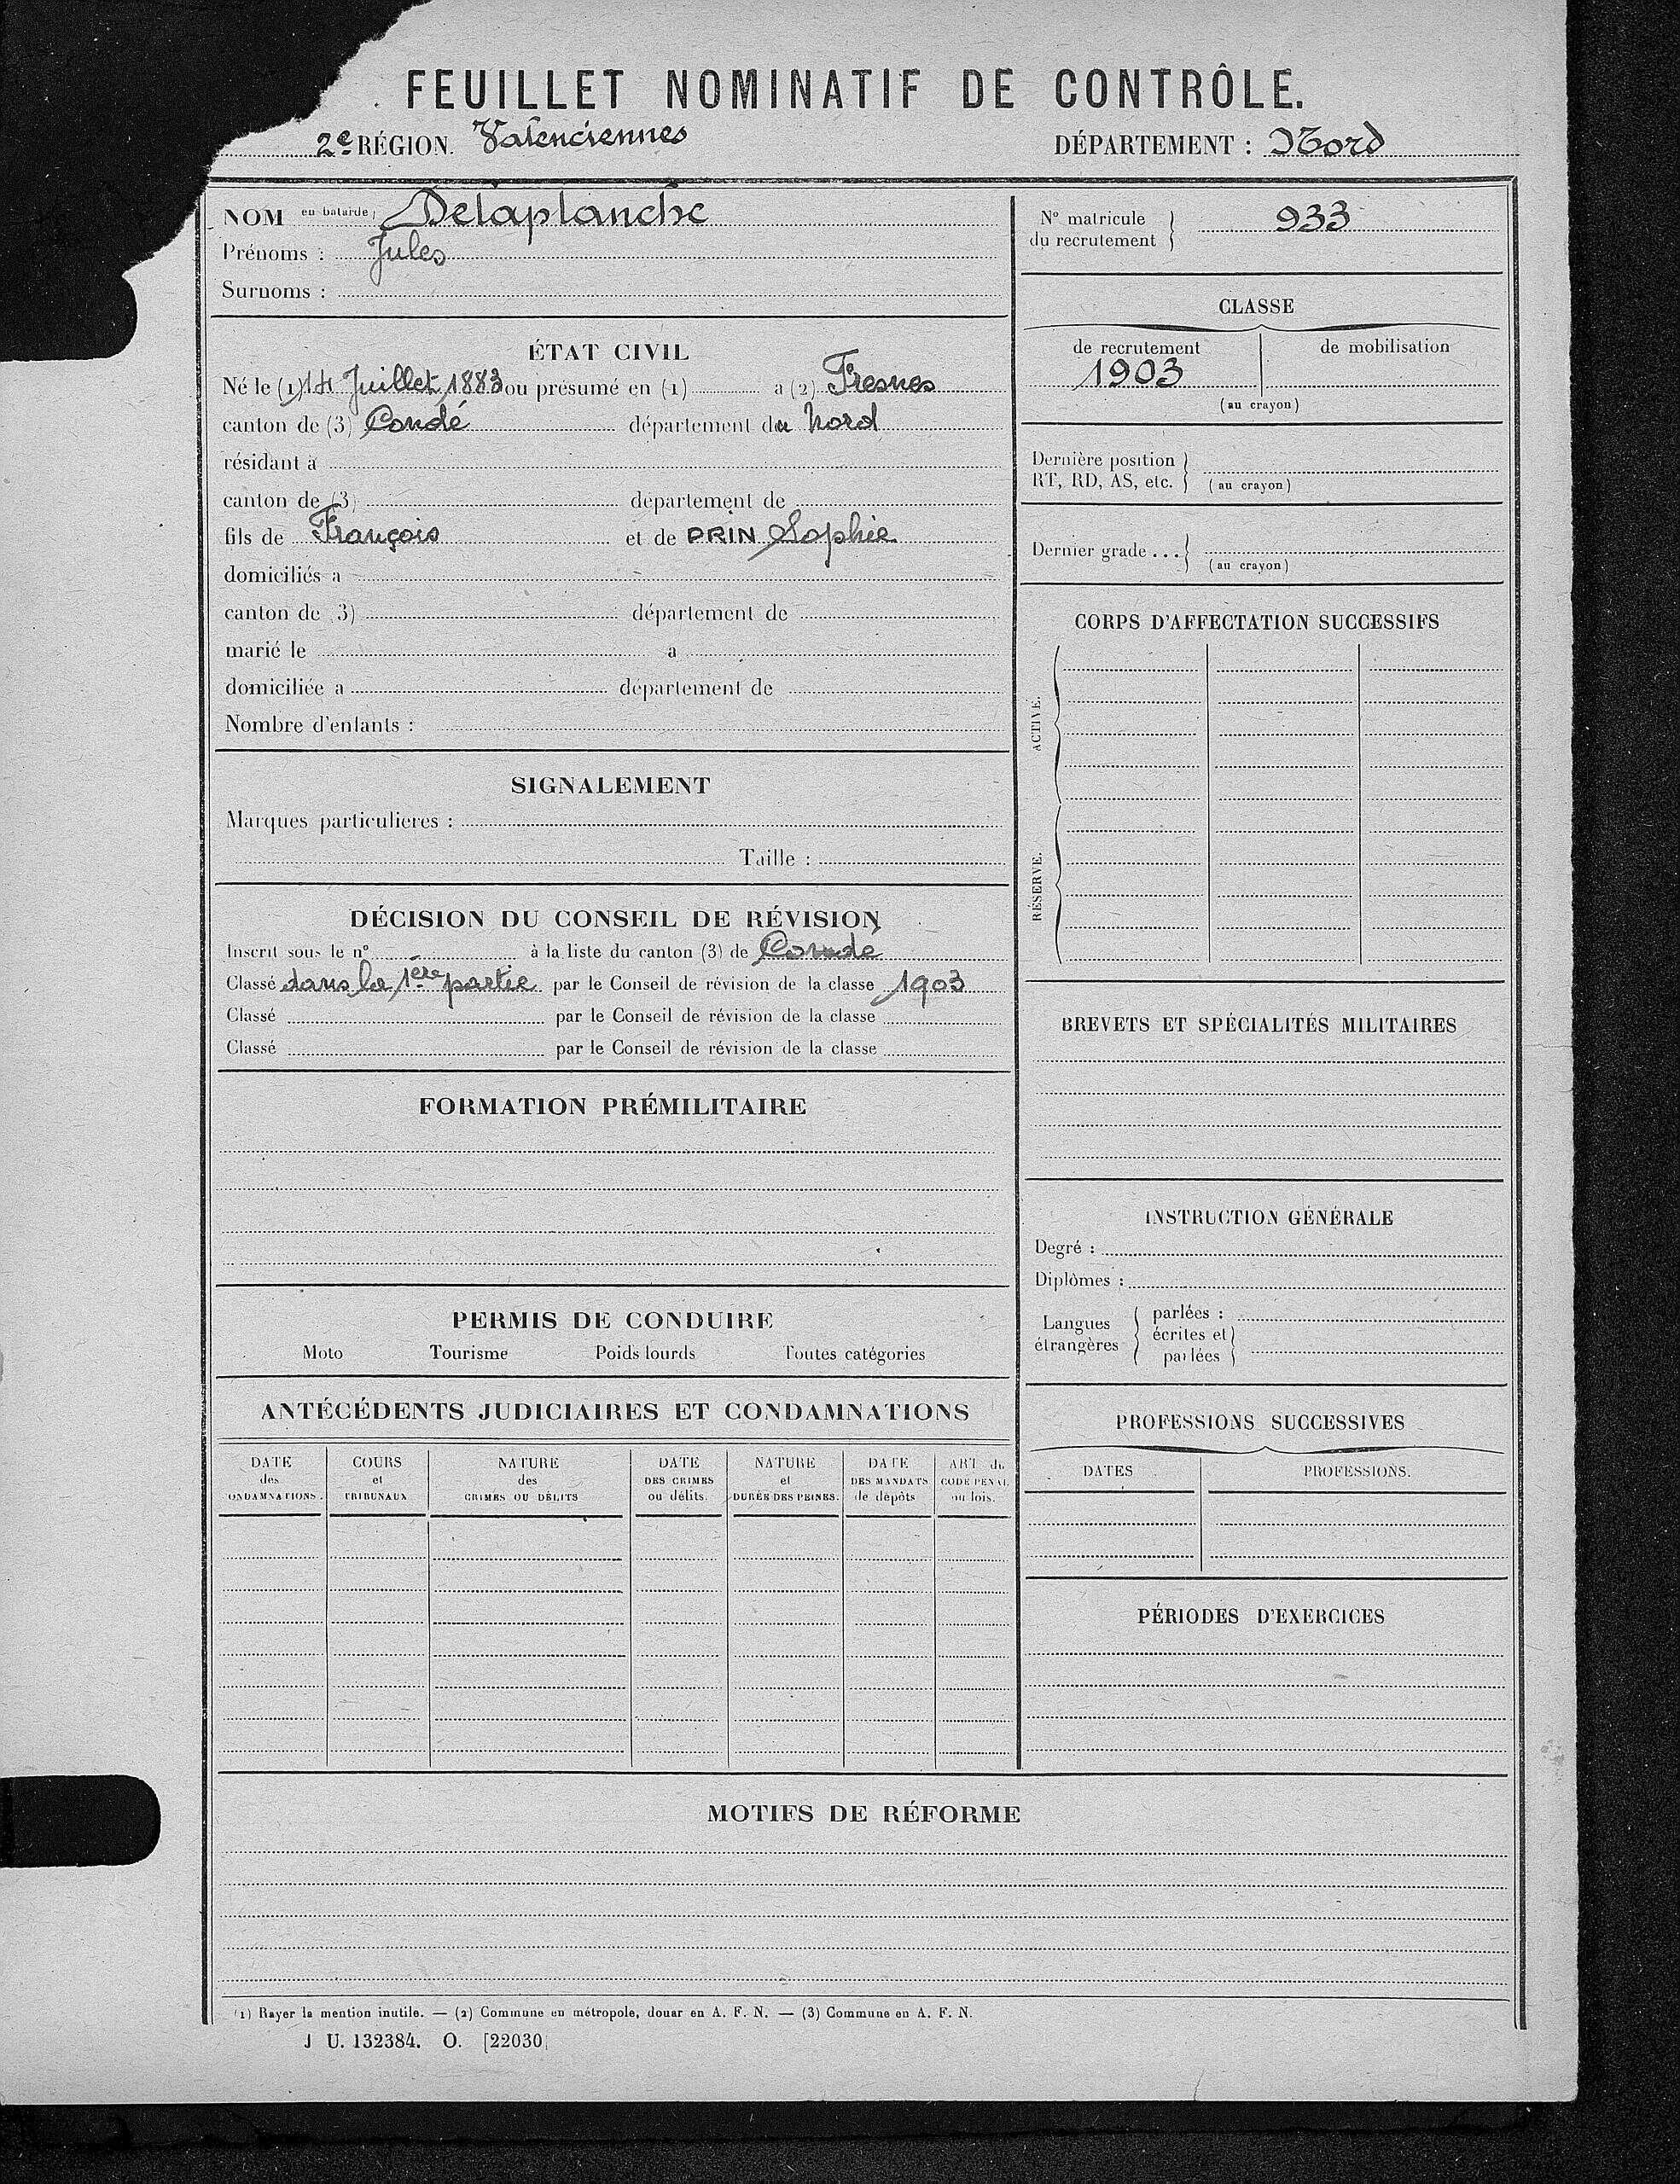 FEUILLET NOMINATIF DE CONTRÔLE.
2e RÉGION. Valenciennes
DÉPARTEMENT : Nord
NOM en batarde, Delaplanche
Prénoms : Jules
Surnoms :
ÉTAT CIVIL
Né le (1) 14 Juillet 1883 ou présumé en (1) à (2) Fresnes
canton de (3) Condé département du Nord
résidant à
canton de (3) département de
fils de François et de PRIN Sophie
domiciliés à
canton de 3) département de
marié le à
domiciliée à département de
Nombre d'enfants :
SIGNALEMENT
Marques particulieres :
Taille :
DÉCISION DU CONSEIL DE RÉVISION
Inscrit sous le n° à la liste du canton (3) de Condé
Classé dans la 1ère partie par le Conseil de révision de la classe 1903
Classé par le Conseil de révision de la classe
Classé par le Conseil de révision de la classe
FORMATION PRÉMILITAIRE
PERMIS DE CONDUIRE
Moto Tourisme Poids lourds Toutes catégories
ANTÉCÉDENTS JUDICIAIRES ET CONDAMNATIONS
DATE des CONDAMNATIONS.
COURS et TRIBUNAUX
NATURE des CRIMES OU DÉLITS
DATE DES CRIMES ou délits.
NATURE et DURÉE DES PEINES.
DATE DES MANDATS de dépôts
ART. du CODE PENAL ou lois.
N° matricule
du recrutement
933
CLASSE
de recrutement
de mobilisation
1903
(au crayon)
Dernière position
RT, RD, AS, etc. (au crayon)
Dernier grade ...
(au crayon)
CORPS D'AFFECTATION SUCCESSIFS
ACTIVE.
RÉSERVE.
BREVETS ET SPÉCIALITÉS MILITAIRES
INSTRUCTION GÉNÉRALE
Degré :
Diplômes :
Langues étrangères
parlées :
écrites et
parlées
PROFESSIONS SUCCESSIVES
DATES
PROFESSIONS.
PÉRIODES D'EXERCICES
MOTIFS DE RÉFORME
(1) Rayer la mention inutile. — (2) Commune en métropole, douar en A. F. N. — (3) Commune en A. F. N.
J U. 132384. O. [22030]